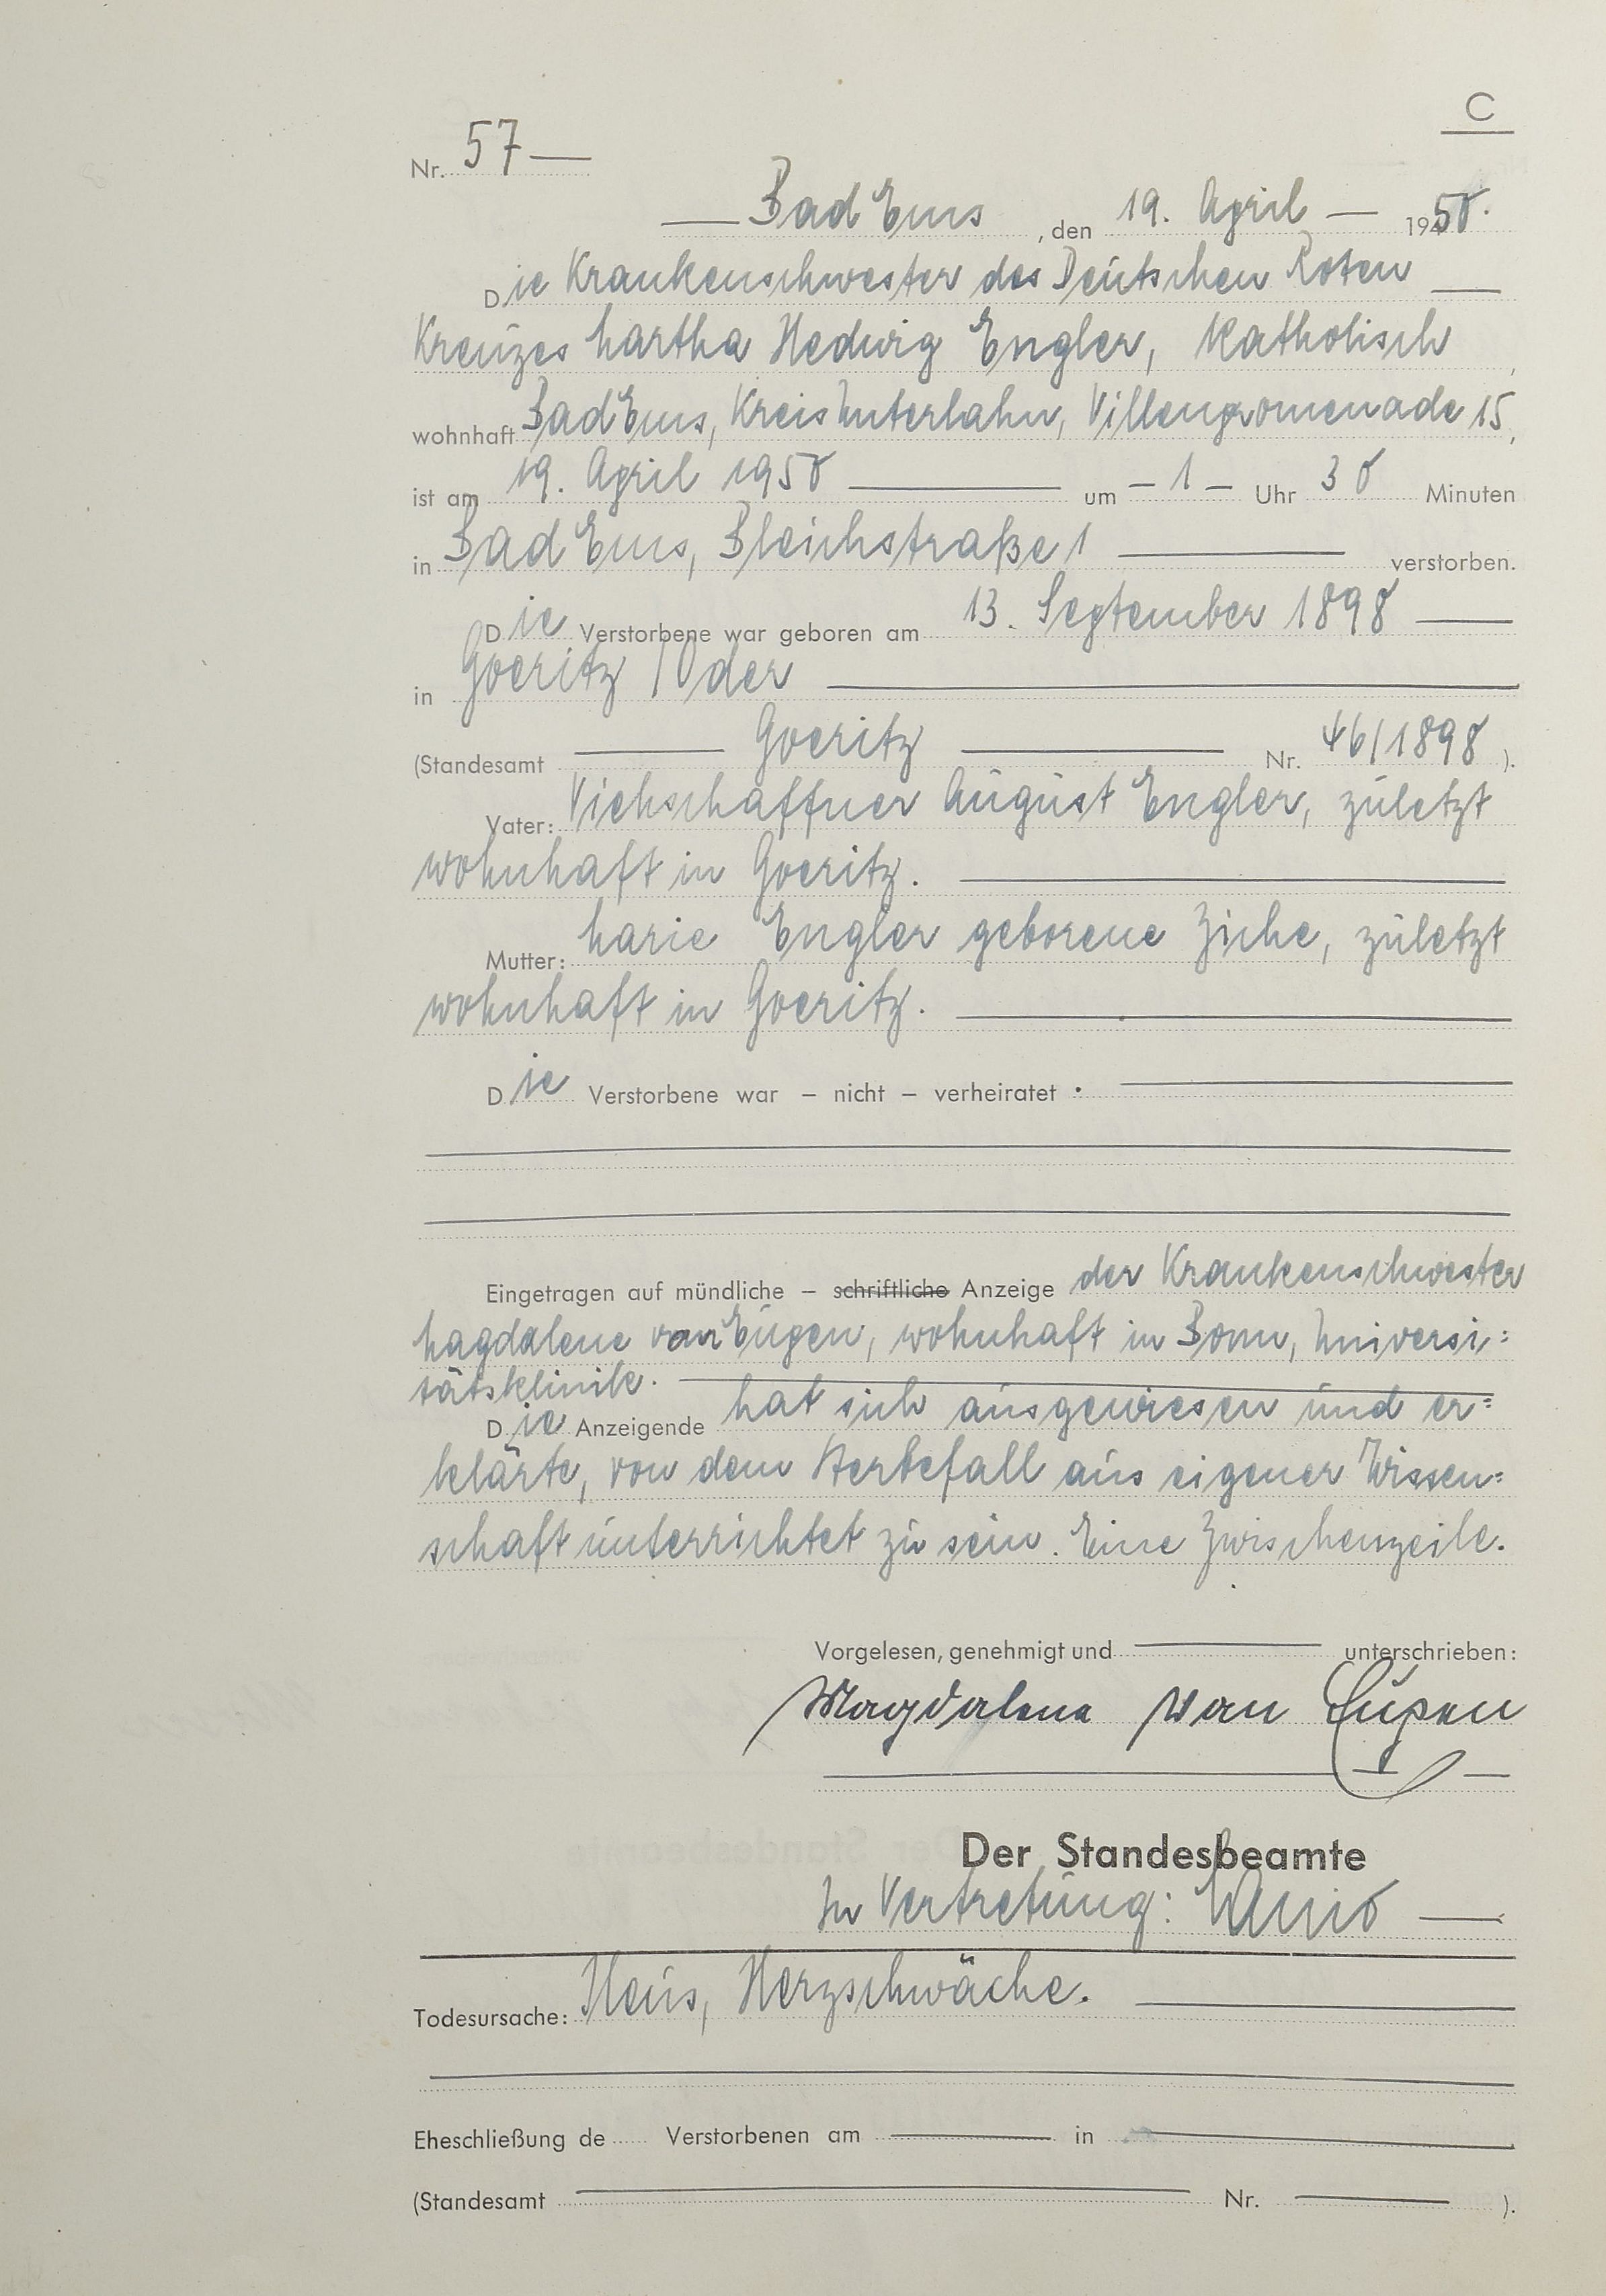 C
Nr. 57 —
— Bad Ems, den 19. April — 1950.
Die Krankenschwester des Deutschen Roten —
Kreuzes Martha Hedwig Engler, katholisch,
wohnhaft Bad Ems, Kreis Unterlahn, Villenpromenade 15,
ist am 19. April 1950 — um – 1 – Uhr 30 Minuten
in Bad Ems, Bleichstraße 1 — verstorben.
Die Verstorbene war geboren am 13. September 1898 —
in Goeritz / Oder —
(Standesamt — Goeritz — Nr. 46/1898 ).
Vater: Viehschaffner August Engler, zuletzt
wohnhaft in Goeritz. —
Mutter: Marie Engler geborene Ziche, zuletzt
wohnhaft in Goeritz. —
Die Verstorbene war – nicht – verheiratet. —
Eingetragen auf mündliche – schriftliche Anzeige der Krankenschwester
Magdalene van Eupen, wohnhaft in Bonn, Universi=
tätsklinik. —
Die Anzeigende hat sich ausgewiesen und er=
klärte, von dem Sterbefall aus eigener Wissen=
schaft unterrichtet zu sein. Eine Zwischenzeile.
Vorgelesen, genehmigt und — unterschrieben:
Magdalena van Eupen
Der Standesbeamte
In Vertretung: —
Todesursache: Ileus, Herzschwäche. —
Eheschließung de Verstorbenen am — in —
(Standesamt — Nr. — ).